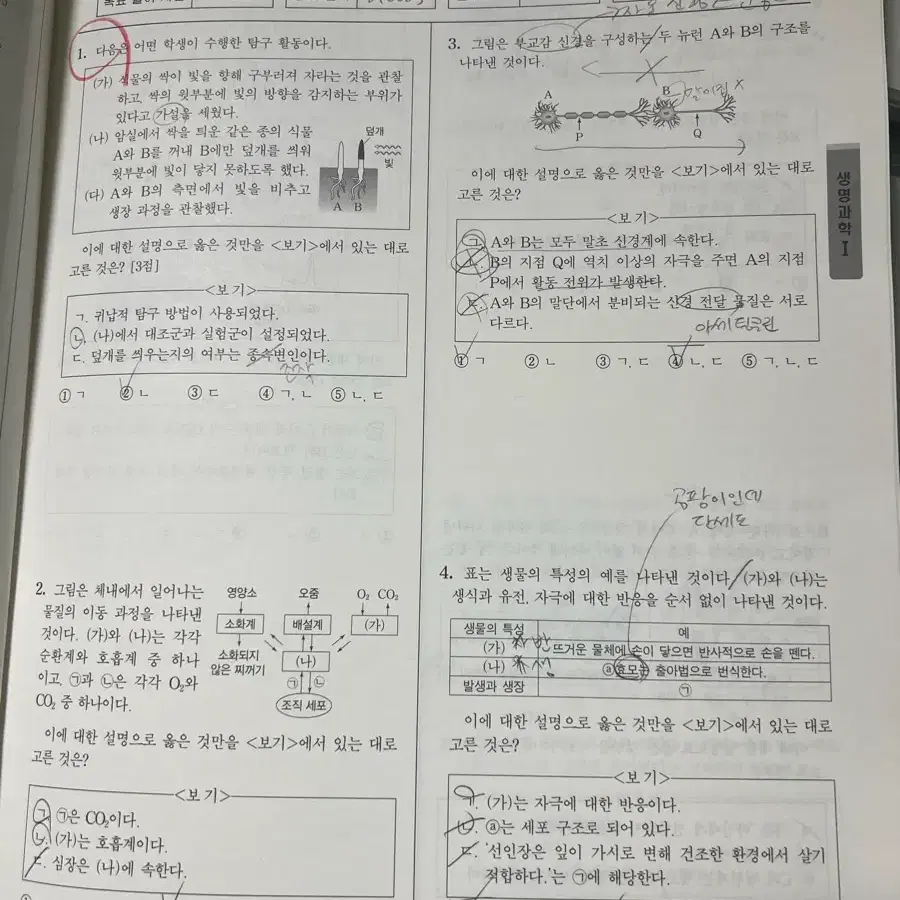 1. 다음은 어떤 학생이 수행한 탐구 활동이다.
(가) 식물의 싹이 빛을 향해 구부러져 자라는 것을 관찰
하고, 싹의 윗부분에 빛의 방향을 감지하는 부위가
있다고 가설을 세웠다.
(나) 암실에서 싹을 틔운 같은 종의 식물
A와 B를 꺼내 B에만 덮개를 씌워
윗부분에 빛이 닿지 못하도록 했다.
(다) A와 B의 측면에서 빛을 비추고
생장 과정을 관찰했다.
덮개
빛
A B
이에 대한 설명으로 옳은 것만을 <보기>에서 있는 대로
고른 것은? [3점]
<보 기>
ㄱ. 귀납적 탐구 방법이 사용되었다.
ㄴ. (나)에서 대조군과 실험군이 설정되었다.
ㄷ. 덮개를 씌우는지의 여부는 종속변인이다.
조작
① ㄱ ② ㄴ ③ ㄷ ④ ㄱ, ㄴ ⑤ ㄴ, ㄷ
2. 그림은 체내에서 일어나는
물질의 이동 과정을 나타낸
것이다. (가)와 (나)는 각각
순환계와 호흡계 중 하나
이고, ㉠과 ㉡은 각각 O₂와
CO₂ 중 하나이다.
영양소 오줌 O₂ CO₂
소화계 배설계 (가)
소화되지
않은 찌꺼기
(나)
㉠ ㉡
조직 세포
이에 대한 설명으로 옳은 것만을 <보기>에서 있는 대로
고른 것은?
<보 기>
ㄱ. ㉠은 CO₂이다.
ㄴ. (가)는 호흡계이다.
ㄷ. 심장은 (나)에 속한다.
3. 그림은 부교감 신경을 구성하는 두 뉴런 A와 B의 구조를
나타낸 것이다.
A B 말이집 X
P Q
이에 대한 설명으로 옳은 것만을 <보기>에서 있는 대로
고른 것은?
<보 기>
ㄱ. A와 B는 모두 말초 신경계에 속한다.
ㄴ. B의 지점 Q에 역치 이상의 자극을 주면 A의 지점
P에서 활동 전위가 발생한다.
ㄷ. A와 B의 말단에서 분비되는 신경 전달 물질은 서로
다르다.
아세틸콜린
① ㄱ ② ㄴ ③ ㄱ, ㄷ ④ ㄴ, ㄷ ⑤ ㄱ, ㄴ, ㄷ
생명과학 Ⅰ
곰팡이인데
단세포
4. 표는 생물의 특성의 예를 나타낸 것이다. (가)와 (나)는
생식과 유전, 자극에 대한 반응을 순서 없이 나타낸 것이다.
생물의 특성 예
(가) 뜨거운 물체에 손이 닿으면 반사적으로 손을 뗀다.
(나) ⓐ효모는 출아법으로 번식한다.
발생과 생장 ㉠
이에 대한 설명으로 옳은 것만을 <보기>에서 있는 대로
고른 것은?
<보 기>
ㄱ. (가)는 자극에 대한 반응이다.
ㄴ. ⓐ는 세포 구조로 되어 있다.
ㄷ. '선인장은 잎이 가시로 변해 건조한 환경에서 살기
적합하다.'는 ㉠에 해당한다.